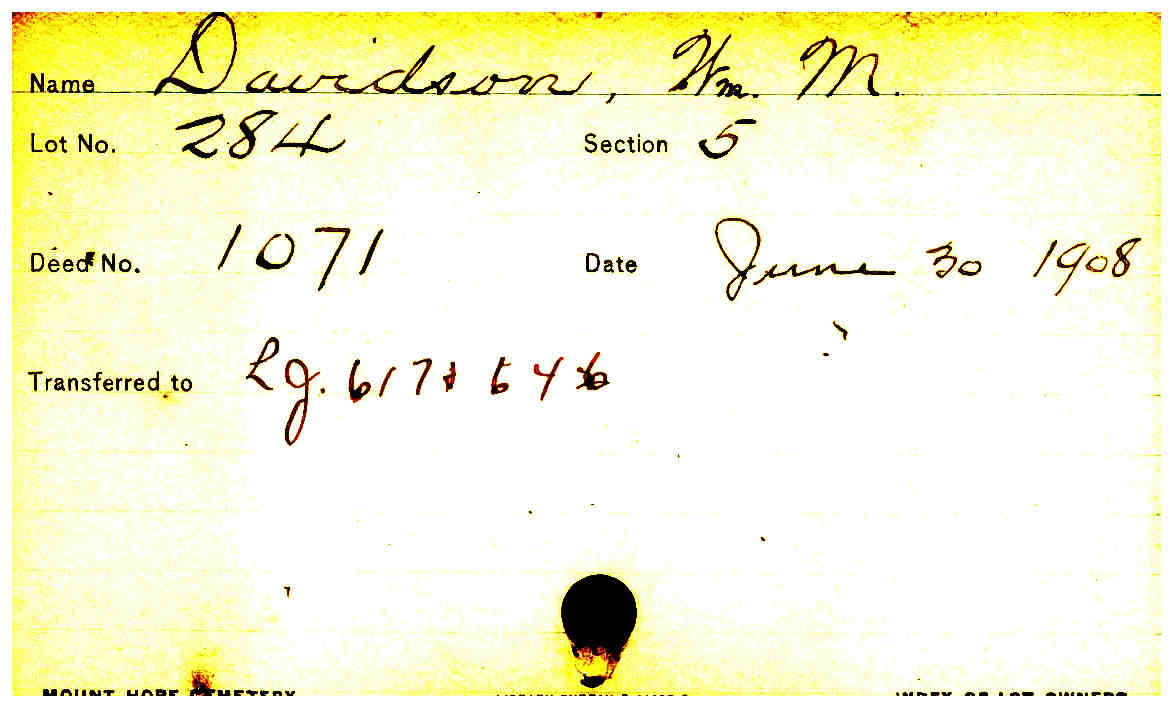 Name Davidson, Wm. M.
Lot No. 284 Section 5
Deed No. 1071 Date June 30 1908
Transferred to Lg. 617 & 646
MOUNT HOPE CEMETERY INDEX OF LOT OWNERS